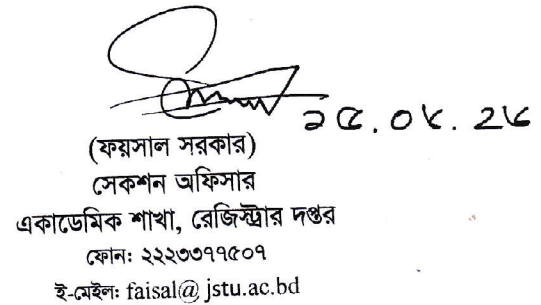 ২৫.০৫.২৬
(ফয়সাল সরকার)
সেকশন অফিসার
একাডেমিক শাখা, রেজিস্ট্রার দপ্তর
ফোন: ২২২৩৩৭৭৫০৭
ই-মেইল: faisal@jstu.ac.bd